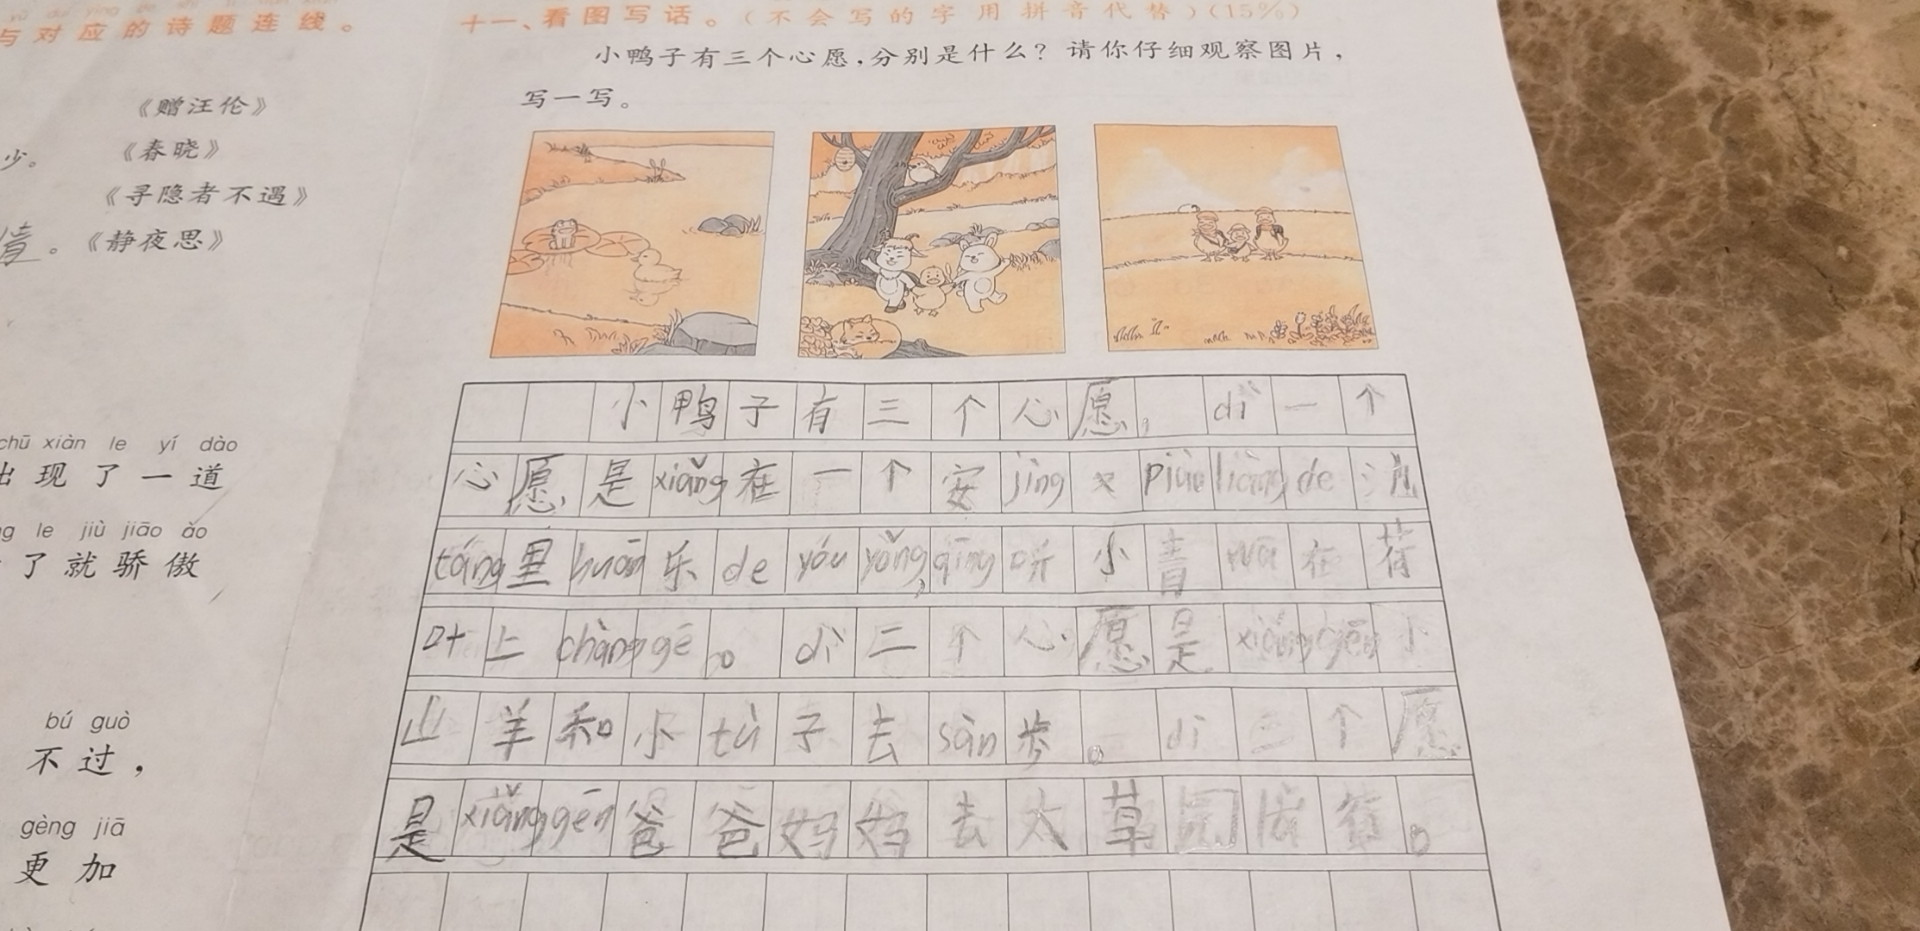 与对应的诗题连线。
《赠汪伦》
少。 《春晓》
《寻隐者不遇》
。《静夜思》
chū xiàn le yí dào
出现了一道
le jiù jiāo ào
了就骄傲
bú guò
不过，
gèng jiā
更加
十一、看图写话。(不会写的字用拼音代替)(15%)
小鸭子有三个心愿,分别是什么? 请你仔细观察图片,
写一写。
小鸭子有三个心愿, dì 一个
心愿是 xiǎng 在一个安 jìng 又 piào liàng de
táng 里 huān 乐 de yóu yǒng, qīng 听小青 wā 在荷
叶上 chàng gē。 dì 二个心愿是 xiǎng gēn 小
山羊和小 tù 子去 sàn 步。 dì 三个愿
是 xiǎng gēn 爸爸妈妈去大草